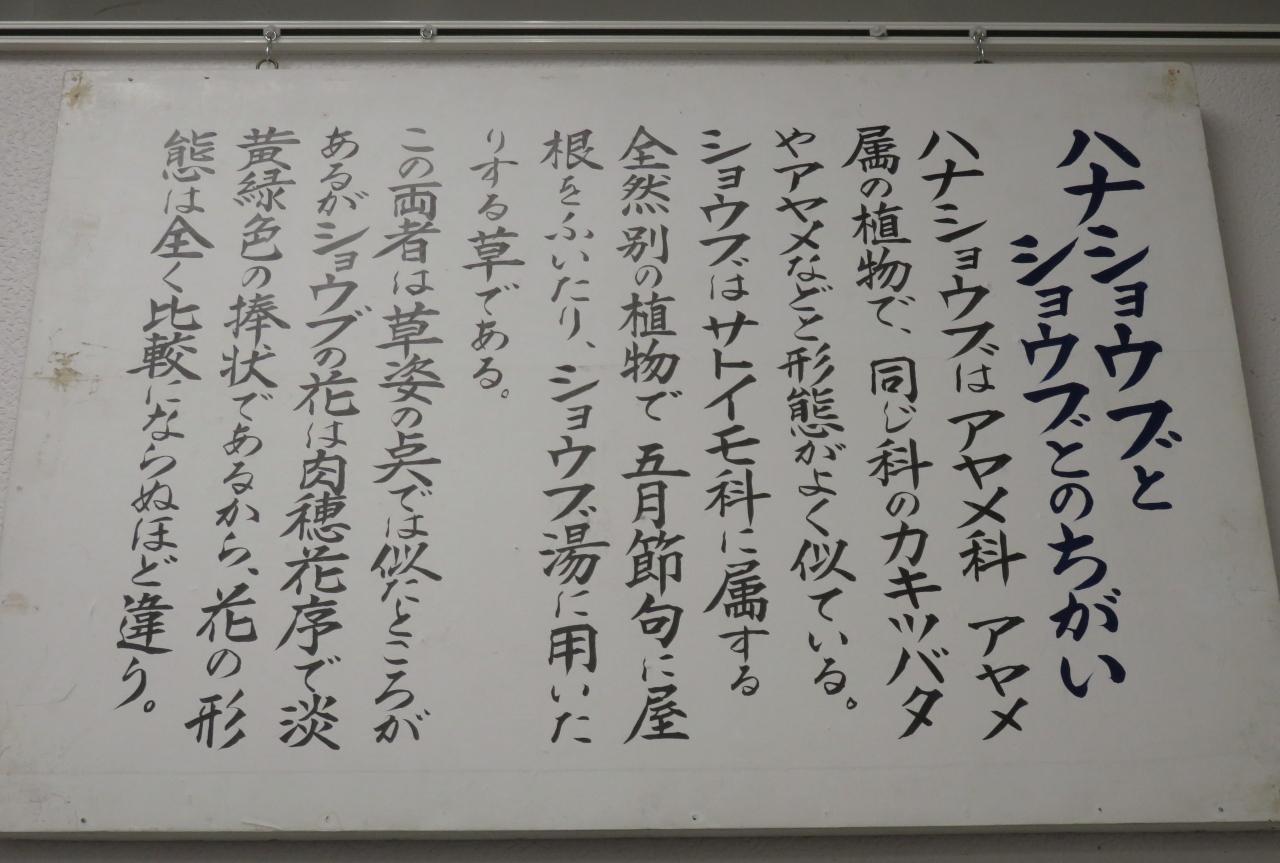 ハナショウブと
ショウブとのちがい
ハナショウブはアヤメ科 アヤメ
属の植物で、同じ科のカキツバタ
やアヤメなどと形態がよく似ている。
ショウブはサトイモ科に属する
全然別の植物で 五月節句に屋
根をふいたり、ショウブ湯に用いた
りする草である。
この両者は草姿の点では似たところが
あるがショウブの花は肉穂花序で淡
黄緑色の捧状であるから、花の形
態は全く比較にならぬほど違う。